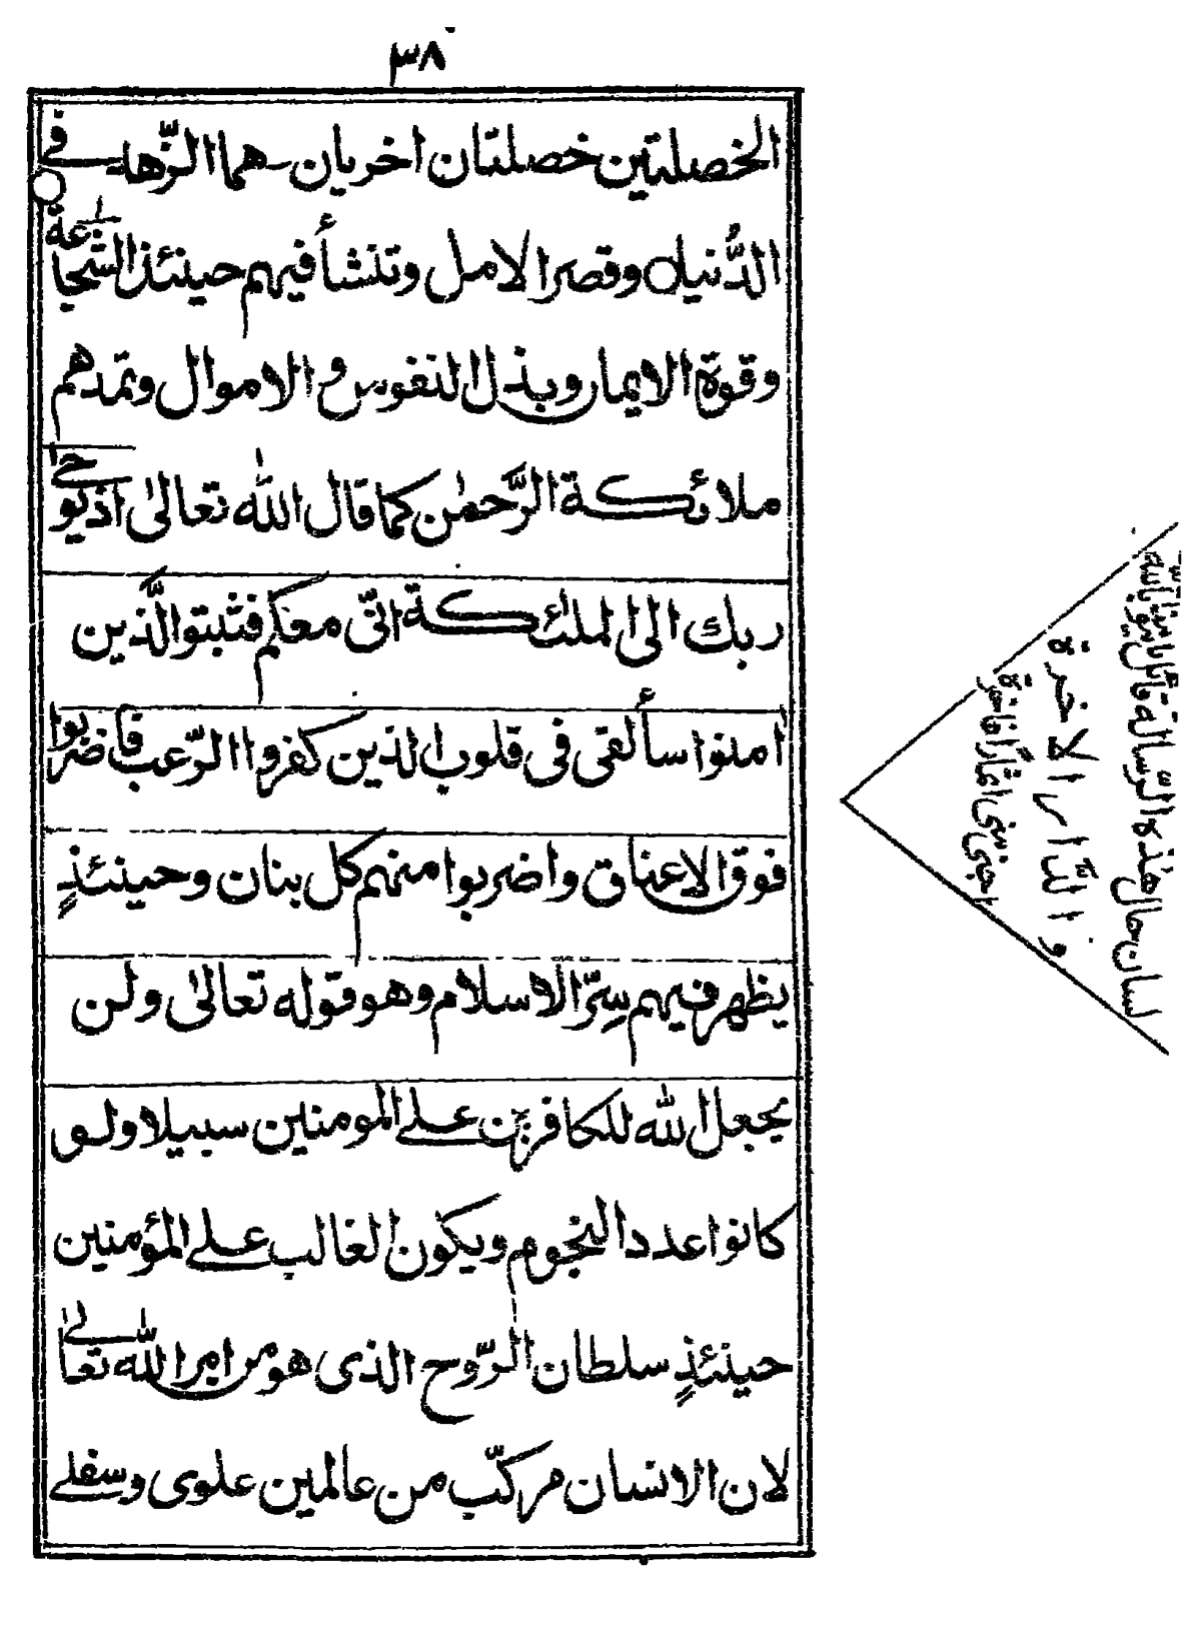 ٣٨
الخصلتين خصلتان اخريان هما الزّهد في
الدُّنيا وقصر الامل وتنشأ فيهم حينئذ الشجاعة
وقوة الايمان وبذل النفوس والاموال وتمدهم
ملائكة الرَّحمٰن كما قال الله تعالىٰ اذ يوحى
ربك الى الملئكة انّى معكم فثبتوا الَّذين
اٰمنوا سألقى فى قلوب الذين كفروا الرّعب فاضربوا
فوق الاعناق واضربوا منهم كل بنان وحينئذٍ
يظهر فيهم سِرّ الاسلام وهو قوله تعالىٰ ولن
يجعل الله للكافرين على المومنين سبيلا ولو
كانوا عدد النجوم ويكون الغالب على المؤمنين
حينئذٍ سلطان الرّوح الذى هو من امر الله تعالىٰ
لان الانسان مركّب من عالمين علوى وسفلى
لسان حال هٰذه الرّسالة قائل
والدّار الاخرة